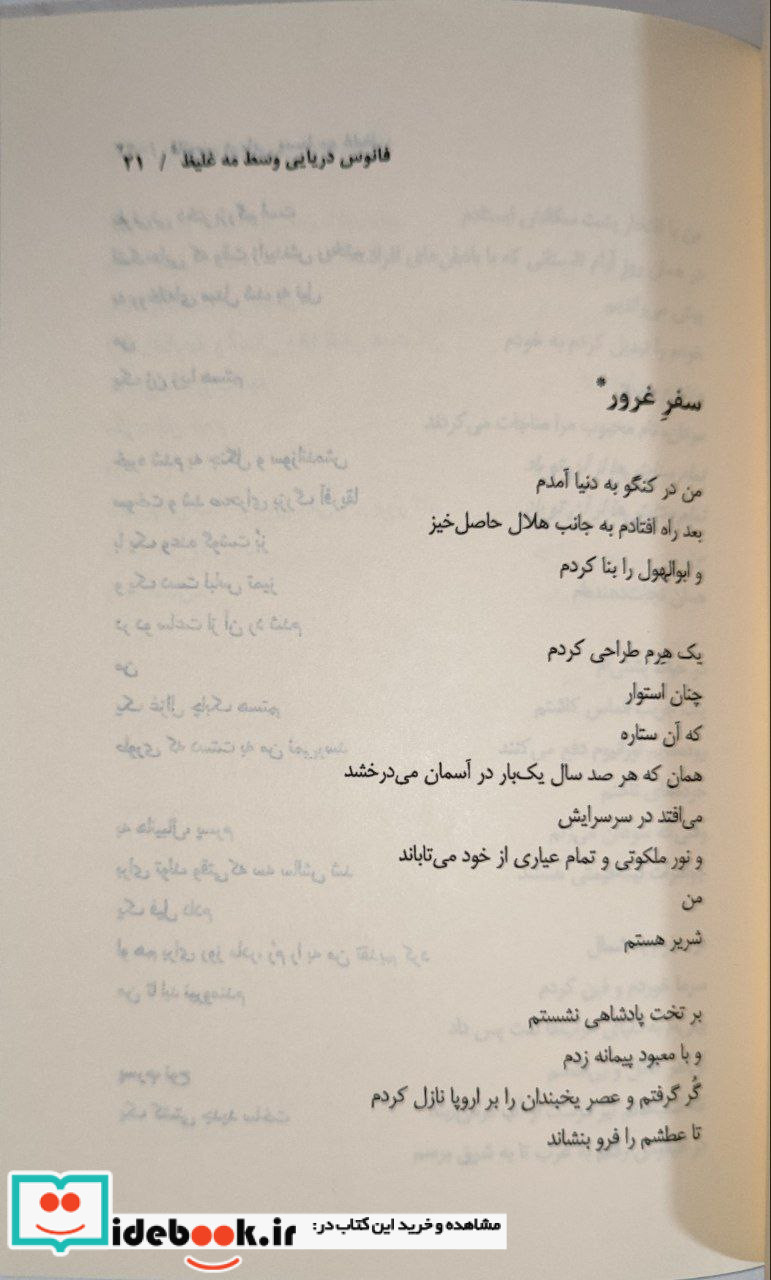 فانوس دریایی وسط مه غلیظ / ۲۱
سفرِ غرور*
من در کنگو به دنیا آمدم
بعد راه افتادم به جانب هلال حاصل‌خیز
و ابوالهول را بنا کردم
یک هِرم طراحی کردم
چنان استوار
که آن ستاره
همان که هر صد سال یک‌بار در آسمان می‌درخشد
می‌افتد در سرسرایش
و نور ملکوتی و تمام عیاری از خود می‌تاباند
من
شریر هستم
بر تخت پادشاهی نشستم
و با معبود پیمانه زدم
گُر گرفتم و عصر یخبندان را بر اروپا نازل کردم
تا عطشم را فرو بنشاند
idebook.ir مشاهده و خرید این کتاب در: